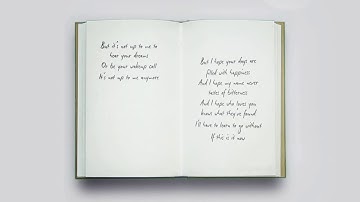 But it's not up to me to
hear your dreams
Or be your wakeup call
It's not up to me anymore
But I hope your days are
filled with happiness
And I hope my name never
tastes of bitterness
And I hope who loves you
knows what they've found
I'll have to learn to go without
If this is it now